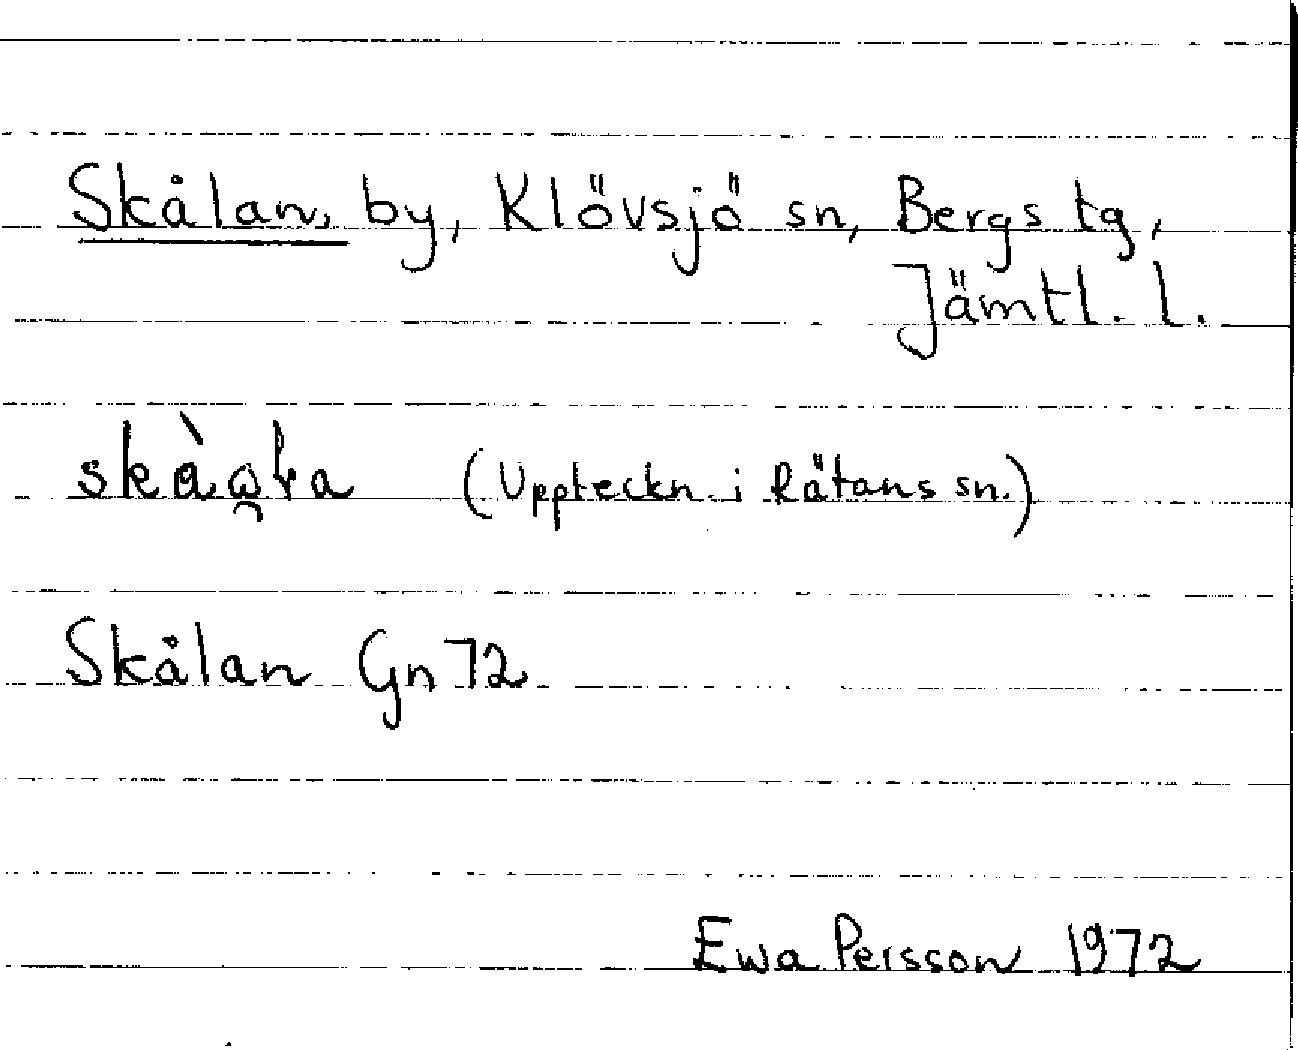 Skålan, by, Klövsjö sn, Bergs tg,
Jämtl. l.
(Uppteckn. i Rätans sn.)
Skålan Gn 72
Ewa Persson 1972